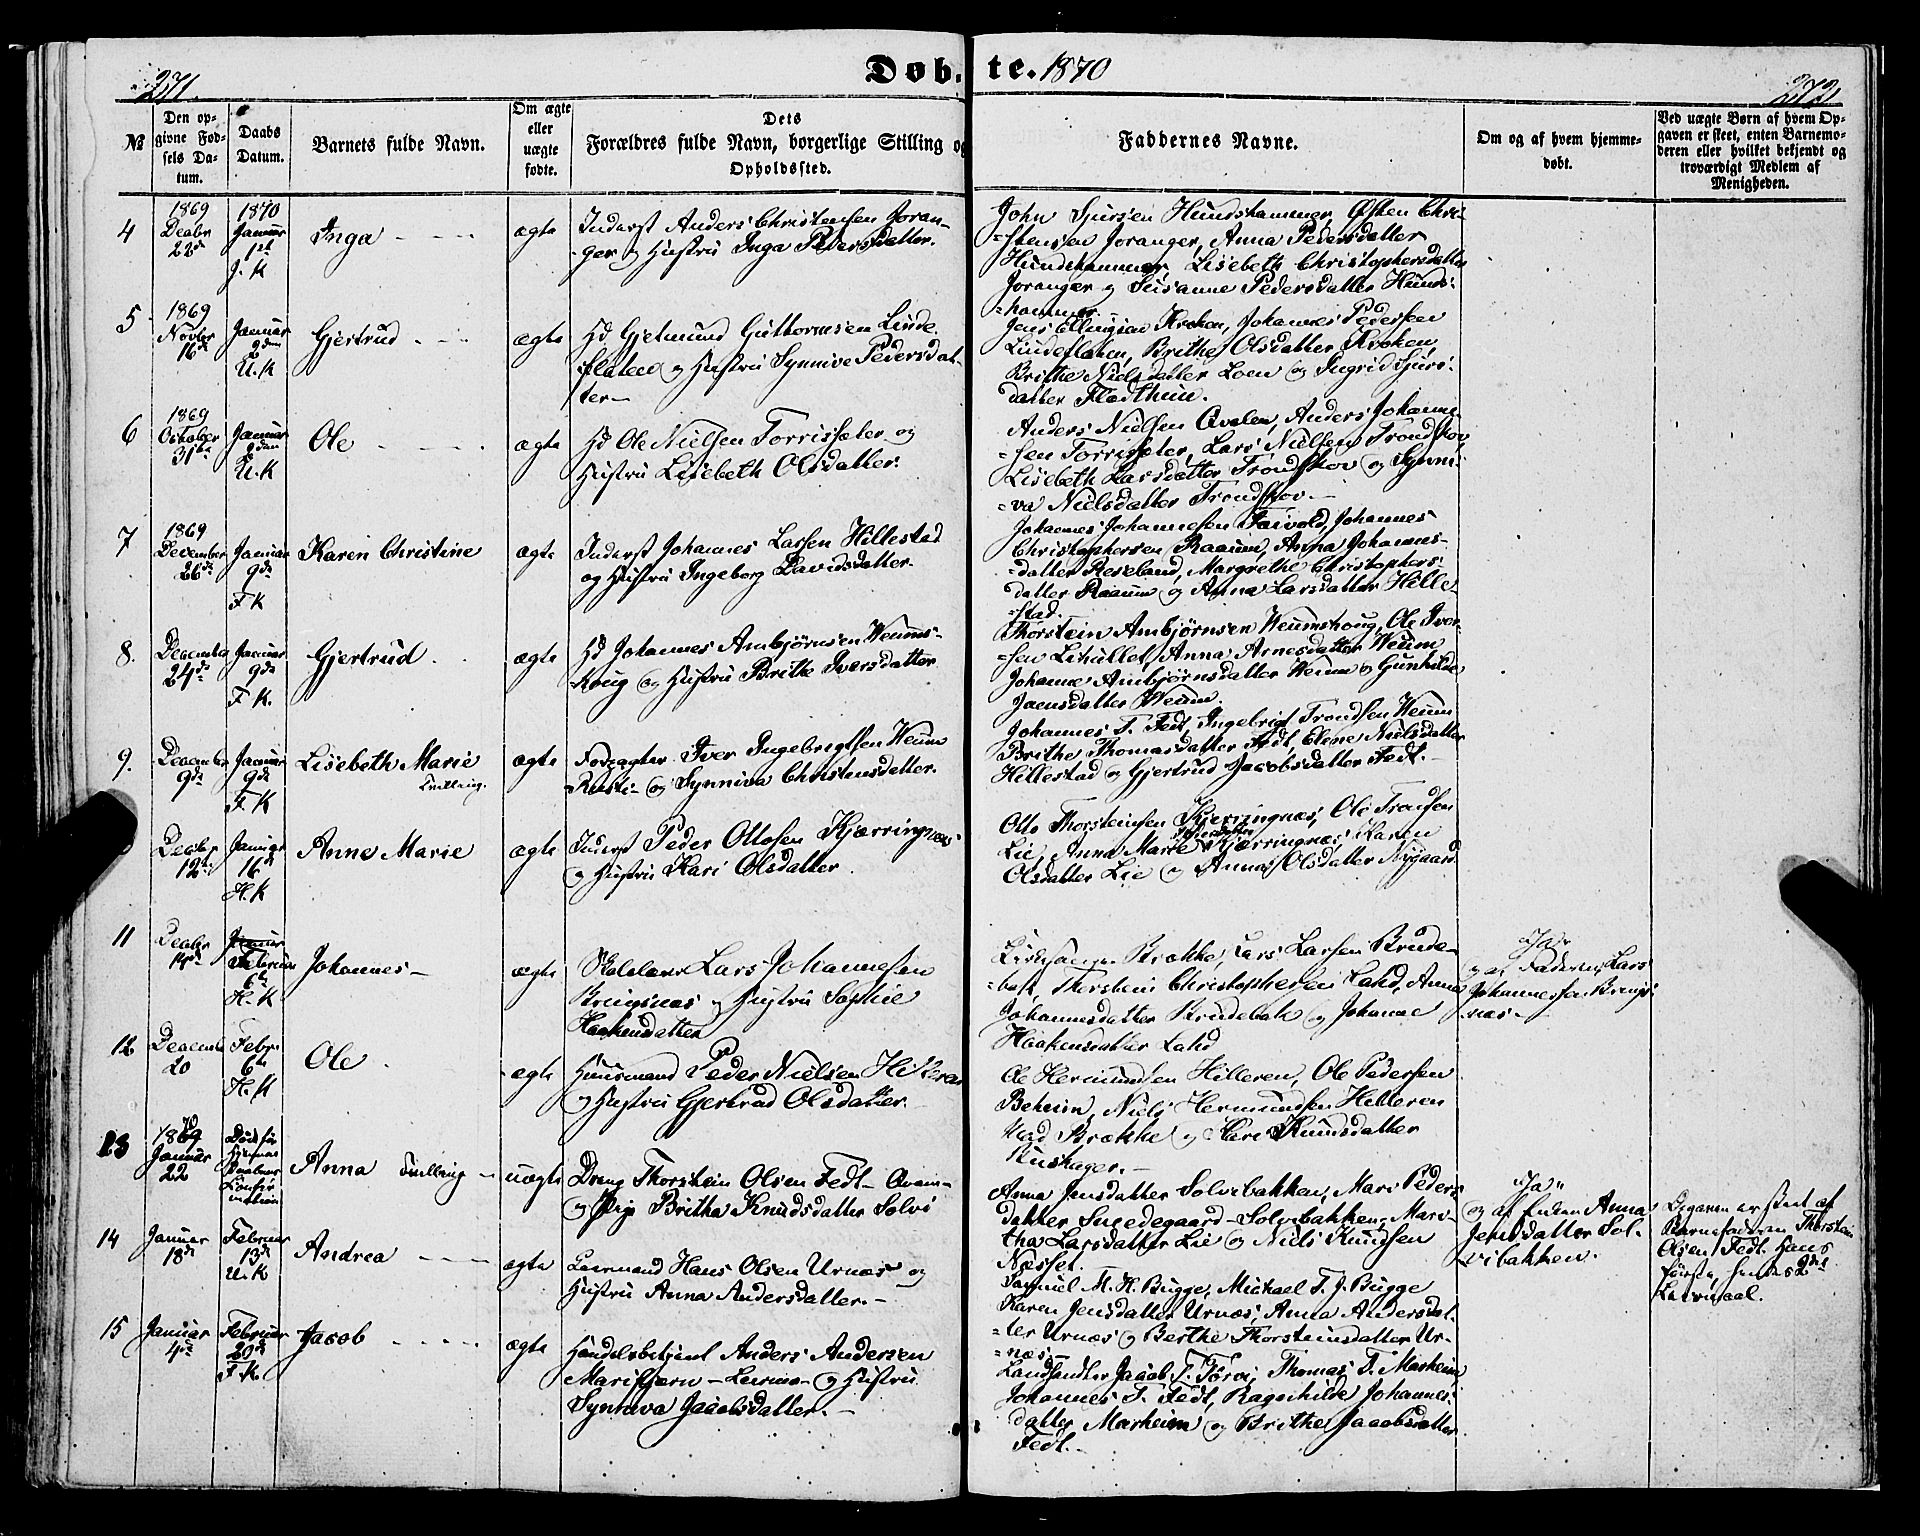 271.
Døb- te. 1870
272
№
Den op-
givne Fød-
sels Da-
tum.
Daabs
Datum.
Barnets fulde Navn.
Om ægte
eller
uægte
fødte.
Dets
Forældres fulde Navn, borgerlige Stilling og
Opholdssted.
Faddernes Navne.
Om og af hvem hjemme-
døbt.
Ved uægte Børn af hvem Op-
gaven er skeet, enten Barnemo-
deren eller hvilket bekjendt og
troværdigt Medlem af
Menigheden.
4
1869
Decbr
22de
1870
Januar
1st
J. K
Inga
ægte
Inderst Anders Christensen Joran-
ger og Hustru Inga Pedersdatter.
John Sjursen Hundshammer, Østen Chri-
stensen Joranger, Anna Pedersdatter
Hundshammer, Lisebeth Christophersdatter
Joranger og Susanne Pedersdatter Hunds-
hammer.
5
1869
Novbr
16de
Januar
2den
U. K
Gjertrud
ægte
Hd Gjetmund Guttormsen Linde-
fladen og Hustru Synnive Pedersdat-
ter
Jens Ellingsen Kroken, Johannes Pedersen
Lindefladen, Brithe Olsdatter Kroken,
Brithe Nielsdatter Loen og Ingrid Sjurs-
datter Fladthun.
6
1869
October
31te
Januar
2den
U. K
Ole
ægte
Hd Ole Nielsen Torrissæter og
Hustru Lisebeth Olsdatter.
Anders Nielsen Qvalen, Anders Johanne-
sen Torrissæter, Lars Nielsen Trondskov,
Lisebeth Larsdatter Trondskov og Synni-
va Nielsdatter Trondskov.
7
1869
December
26de
Januar
9de
F K
Karen Christine
ægte
Inderst Johannes Larsen Hillestad
og Hustru Ingeborg Davidsdatter.
Johannes Johannesen Faivold, Johannes
Christophersen Raaum, Anna Johannes-
datter Reseland, Margrethe Christophers-
datter Raaum og Anna Larsdatter Hille-
stad.
8.
December
24de
Januar
9de
F K.
Gjertrud
ægte
Hd Johannes Ambjørnsen Weums-
houg og Hustru Brithe Iversdatter
Thorstein Ambjørnsen Weumshoug, Ole Iver-
sen Lihullet, Anna Arnesdatter Weum
Johanne Ambjørnsdatter Weum og Gunhilde
Jensdatter Weum.
9.
December
9de
Januar
9de
F K
Lisebeth Marie
Tvilling.
ægte
Iver Ingebrigtsen Weum
og Synniva Christensdatter.
Johannes T. Fedt, Ingebrigt Trondsen Weum
Brithe Thomasdatter Fedt, Elene Nielsdatter
Hillestad og Gjertrud Jacobsdatter Fedt.
Decbr
12te
Januar
16de
H. K
Anne Marie
ægte
Inderst Peder Ottosen Kjærringnæs
og Hustru Kari Olsdatter
Otto Thorsteinsen Kjerringnæs, Ole Tronsen
Lie, Anna Marie Kjærringnæs, Karen
Olsdatter Lie og Anna Olsdatter Nygaard
11
Decbr
14de
Januar
Februar
6te
H. K
Johannes
ægte
Lars Johannesen
Brengsnæs og Hustru Sophie
Haakensdatter
Kirkesanger Brække, Lars Larsen Brude-
bak, Thorstein Christophersen Lahd, Anna
Johannesdatter Brudebak og Johanne
Haakensdatter Lahd
Ja
og af Faderen, Lars
Johannesen Brengs-
næs.
12
December
20
Febr.
6te
H. K
Ole
ægte
Huusmand Peder Nielsen Hilleren
og Hustru Gjertrud Olsdatter.
Ole Hermundsen Hilleren, Ole Pedersen
Beheim, Niels Hermundsen Hilleren
Mad Brække og Kari Knudsdatter
13
1869
70
Januar
22
Død før
Hjemme
Daabens
Confir-
mation
Anna Tvilling
uægte
Dreng Thorstein Olsen Fedt
og Pige Britha Knudsdatter Solvi
Anna Jensdatter Solvibakken, Mari Peders-
datter Sneedegaard Solvibakken, Mar-
tha Larsdatter Lie og Niels Knudsen
Næsset.
Ja
og af Enken Anna
Jensdatter Sol-
vibakken.
Opgaven er skeet af
Barnefaderen Thorstein
Olsen Fedt. Hans
første, hendes 2det
Leiermaal.
14
Januar
18de
Februar
13de
U. K
Andrea
ægte
Leermand Hans Olsen Urnæs og
Hustru Anna Andersdatter.
Samuel M. H. Bugge, Michael T. J. Bugge
Karen Jensdatter Urnæs, Anna Andersdat-
ter Urnæs og Berthe Thorsteinsdatter Ur-
næs
15
Januar
4de
Februar
20de
F. K.
Jacob
ægte
Handelsbetjent Anders Andersen
Marifjæren og Hustru
Synneva Jacobsdatter.
Landhandler Jacob T. Tørvi, Thomas T. Marheim
Johannes T. Fedt, Ragnhilde Johannes-
datter Marheim og Brithe Jacobsdatter
Fedt.